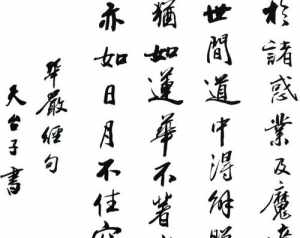 於諸惑業及魔境
世間道中得解脫
猶如蓮華不著
亦如日月不住空
華嚴經句
天台子書